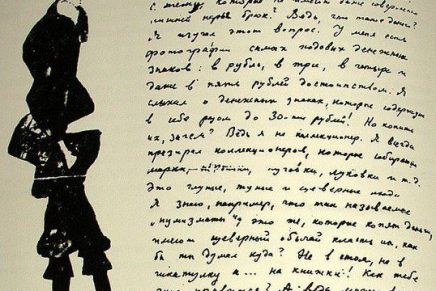 с теми, которые не имеют даже современ-
ной пары брюк? Ведь, что такое деньги?
Я изучал этот вопрос. У меня есть
фотографии самых ходовых денежных
знаков: в рубль, в три, в четыре и
даже в пять рублей достоинством. Я
слыхал о денежных знаках, которые содержат
в себе разом до 30-ти рублей! Но копить
их, зачем? Ведь я не коллекционер. Я всегда
презирал коллекционеров, которые собирают
марки, пуговки, луковки и т.д.
Это глупые, тупые и суеверные люди
Я знаю, например, что так называемые
"нумизматы", это те, которые копят деньги,
имеют суеверный обычай класть их, как
бы ты думал куда? Не в стол, не в
шкатулку а... на книжки! Как тебе